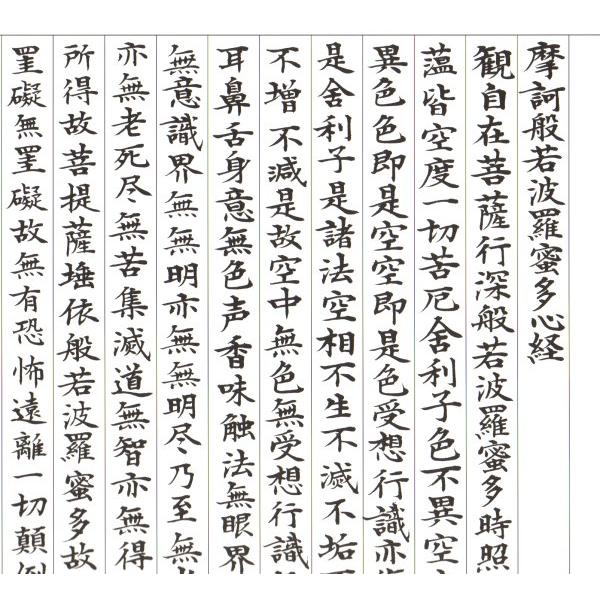 摩訶般若波羅蜜多心経
観自在菩薩行深般若波羅蜜多時照
薀皆空度一切苦厄舍利子色不異空
異色色即是空空即是色受想行識亦
是舍利子是諸法空相不生不滅不垢
不增不減是故空中無色無受想行識
耳鼻舌身意無色声香味触法無眼界
無意識界無無明亦無無明尽乃至無
亦無老死尽無苦集滅道無智亦無得
所得故菩提薩埵依般若波羅蜜多故
罣礙無罣礙故無有恐怖遠離一切顛倒